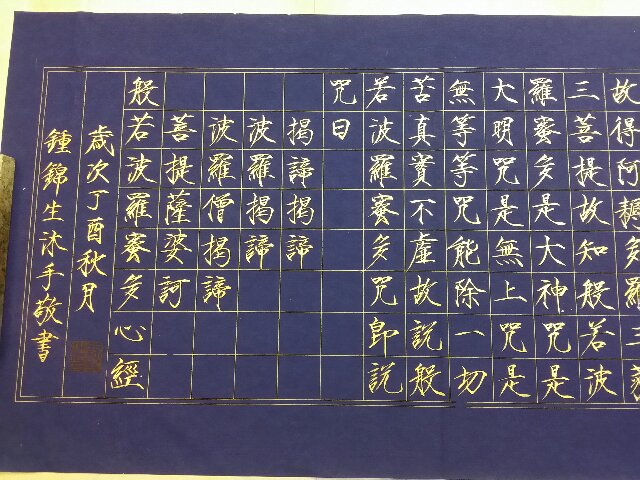 故得阿耨多羅三
三菩提故知般若波
羅蜜多是大神咒是
大明咒是無上咒是
無等等咒能除一切
苦真實不虛故說般
若波羅蜜多咒即說
咒曰
揭諦揭諦
波羅揭諦
波羅僧揭諦
菩提薩婆訶
般若波羅蜜多心經
歲次丁酉秋月
鍾錦生沐手敬書